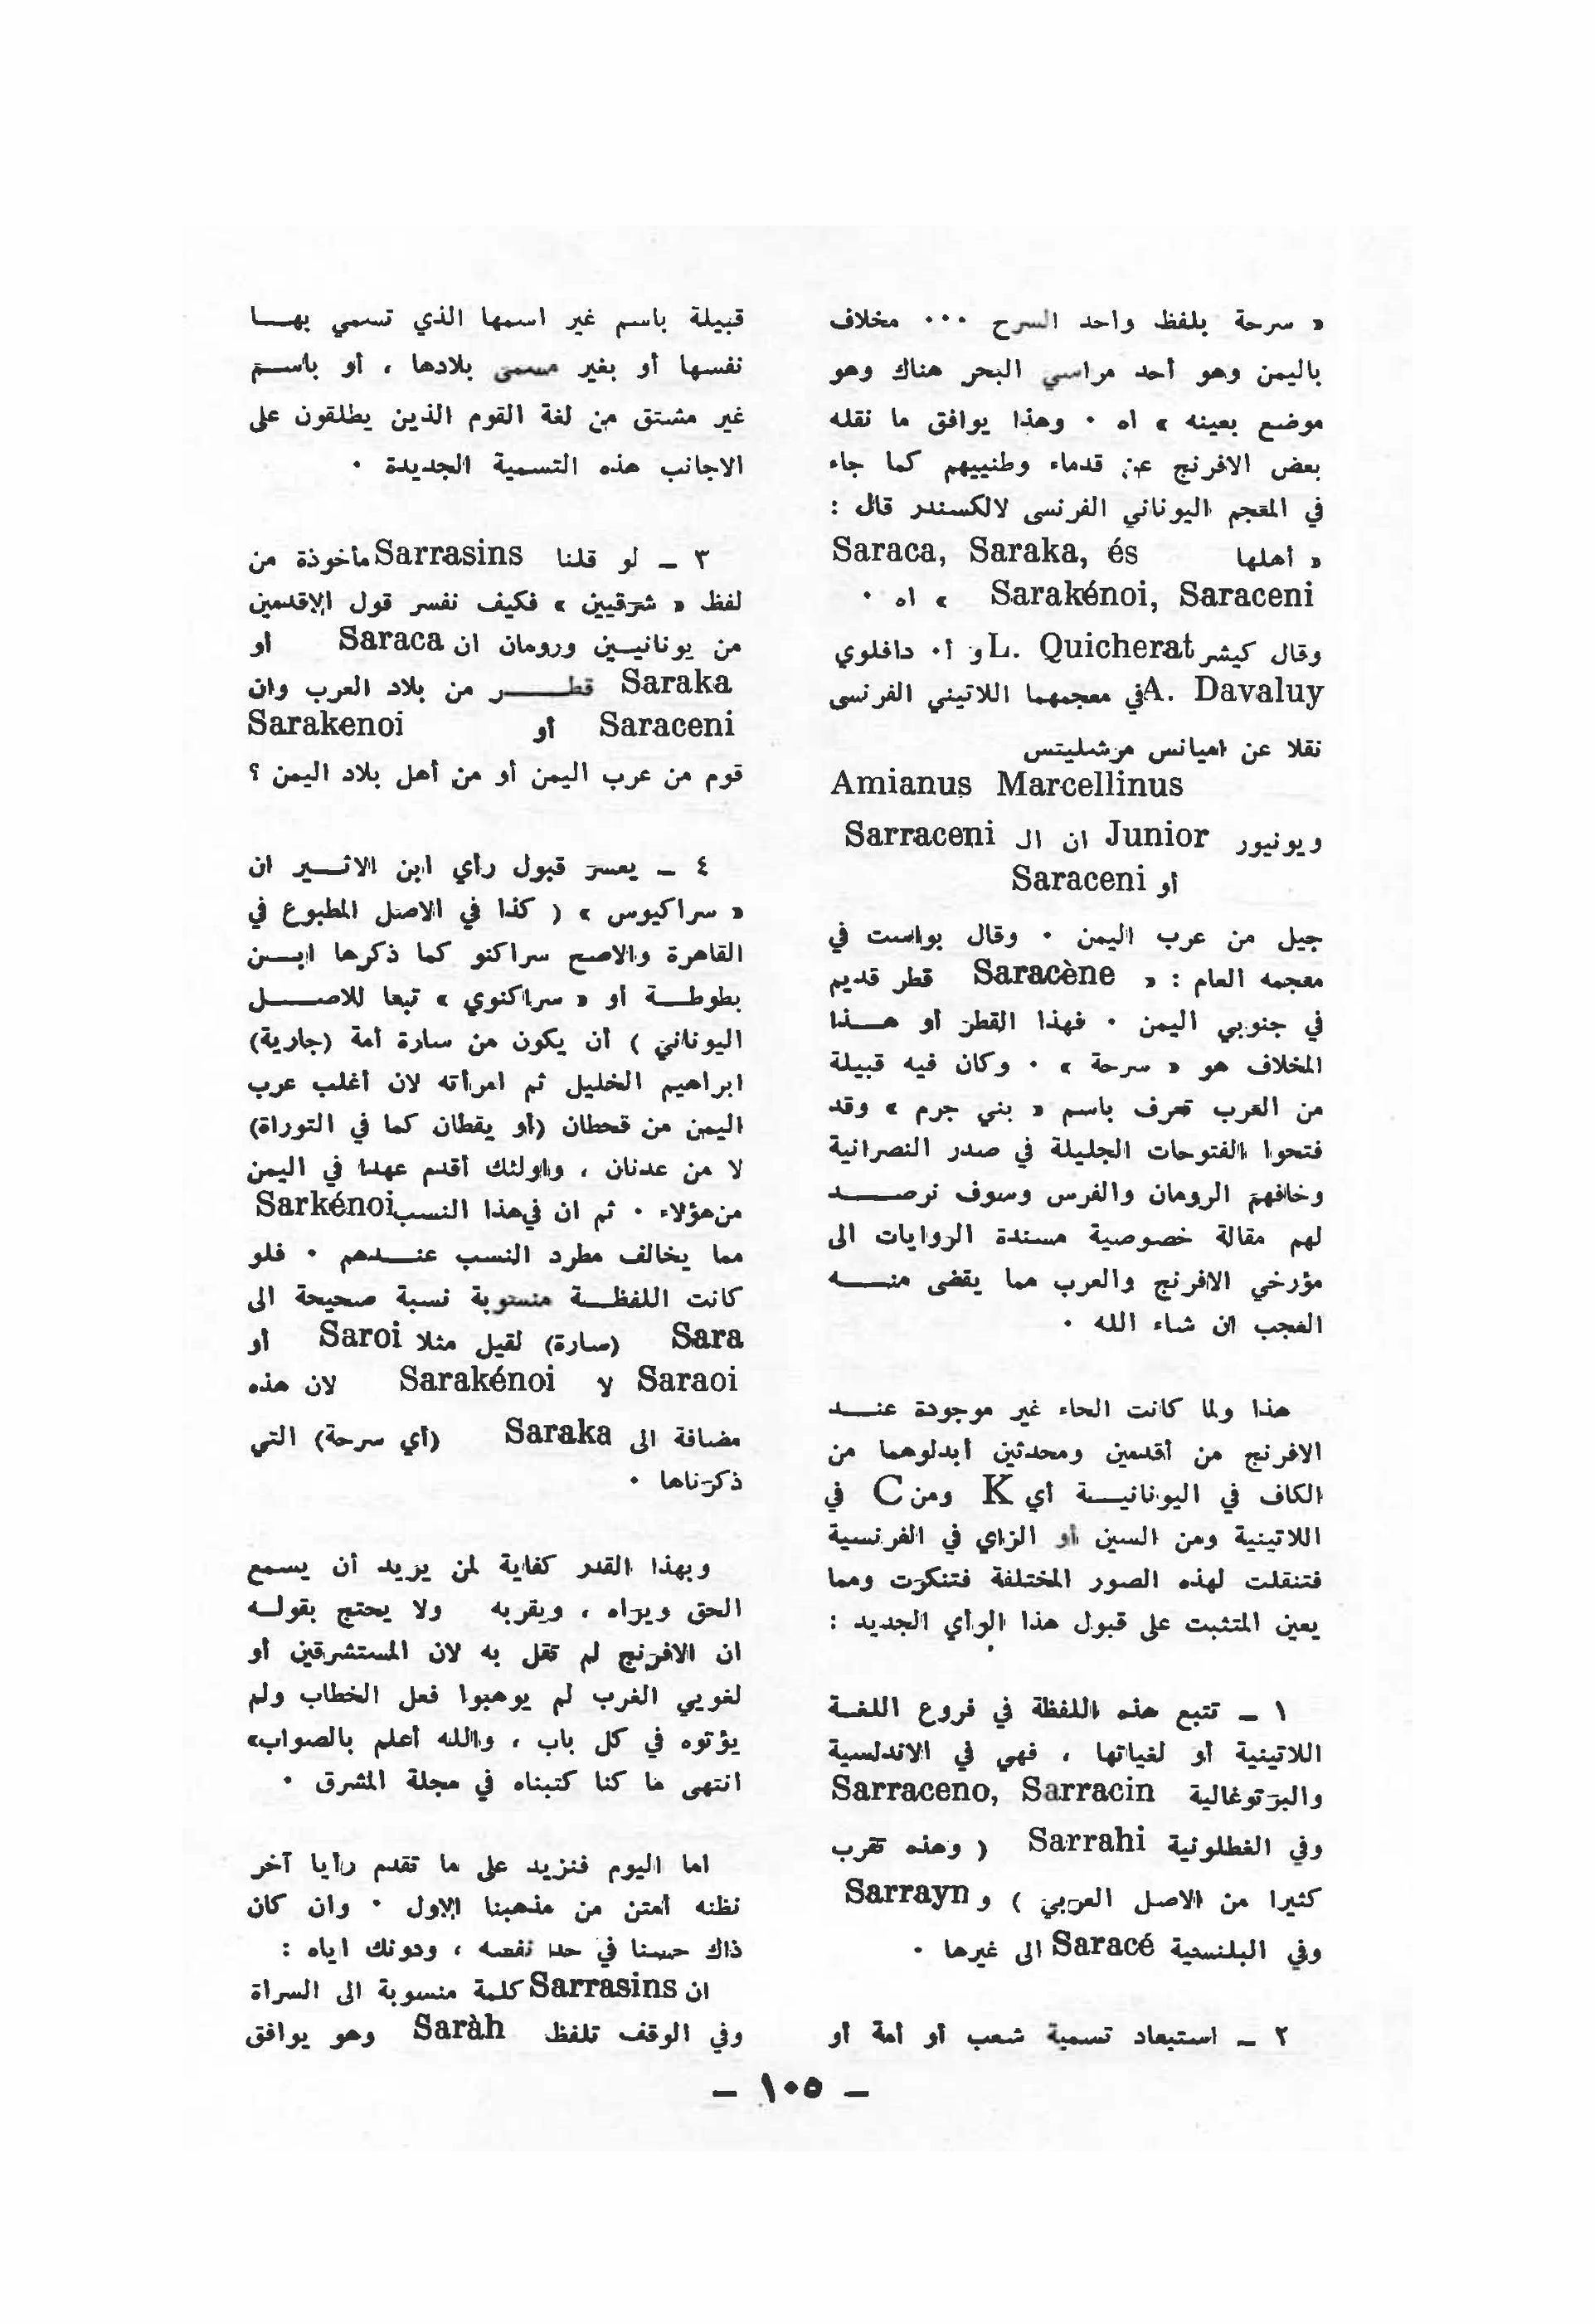 « سرحة بلفظ واحد السرح ٠٠٠ مخلاف
باليمن وهو أحد مراسي البحر هناك وهو
موضع بعينه » اه ٠ وهذا يوافق ما نقله
بعض الافرنج عن قدماء وطنييهم كما جاء
في المعجم اليوناني الفرنسى لالكسندر قال :
« أهلها Saraca, Saraka, és
Sarakénoi, Saraceni » اه ٠
وقال كيشر L. Quicherat و أ٠ دافلوي
A. Davaluy في معجمهما اللاتيني الفرنسى
نقلا عن اميانس مرشليتس
Amianus Marcellinus
ويونيور Junior ان الـ Sarraceni
أو Saraceni
جيل من عرب اليمن ٠ وقال بواست في
معجمه العام : « Saracène قطر قديم
في جنوبي اليمن ٠ فهذا القطر أو هــذا
المخلاف هو « سرحة » ٠ وكان فيه قبيلة
من العرب تعرف باسم « بني جرم » وقد
فتحوا الفتوحات الجليلة في صدر النصرانية
وخافهم الرومان والفرس وسوف نرصــد
لهم مقالة خصوصية مسندة الروايات الى
مؤرخي الافرنج والعرب مما يقضى منــه
العجب ان شاء الله ٠
هذا ولما كانت الحاء غير موجودة عنــد
الافرنج من أقدمين ومحدثين أبدلوهما من
الكاف في اليونانيــة أي K ومن C في
اللاتينية ومن السين أو الزاي في الفرنسية
فتنقلت لهذه الصور المختلفة فتنكرت ومما
يعين المتثبت على قبول هذا الرأي الجديد :
١ ــ تتبع هذه اللفظة في فروع اللغـة
اللاتينية أو لغياتها ، فهي في الاندلسية
والبرتوغالية Sarraceno, Sarracin
وفي القطلونية Sarrahi ( وهذه تقرب
كثيرا من الاصل العربي ) و Sarrayn
وفي البلنسية Saracé الى غيرها ٠
٢ ــ استبعاد تسمية شعب أو أمة أو
قبيلة باسم غير اسمها الذي تسمي بهــا
نفسها أو بغير مسمى بلادها ، أو باســم
غير مشتق من لغة القوم الذين يطلقون على
الاجانب هذه التسمية الجديدة ٠
٣ ــ لو قلنا Sarrasins مأخوذة من
لفظ « شرقيين » فكيف نفسر قول الاقدمين
من يونانيــين ورومان ان Saraca أو
Saraka قطــــر من بلاد العرب وان
Saraceni أو Sarakenoi
قوم من عرب اليمن أو من أهل بلاد اليمن ؟
٤ ــ يعسر قبول رأي ابن الاثــير ان
« سراكيوس » ( كذا في الاصل المطبوع في
القاهرة والاصح سراكنو كما ذكرها ابــن
بطوطــة أو « سراكنوي » تبعا للاصــــل
اليوناني ) أن يكون من سارة أمة (جارية)
ابراهيم الخليل ثم امرأته لان أغلب عرب
اليمن من قحطان (أو يقطان كما في التوراة)
لا من عدنان ، واولئك أقدم عهدا في اليمن
من هؤلاء ٠ ثم ان في هذا النسب Sarkénoi
مما يخالف مطرد النسب عنــدهم ٠ فلو
كانت اللفظــة منسوبة نسبة صحيحة الى
Sara (سارة) لقيل مثلا Saroi أو
Saraoi لا Sarakénoi لان هذه
مضافة الى Saraka (أي سرحة) التي
ذكرناها ٠
وبهذا القدر كفاية لمن يزيد أن يسمع
الحق ويراه ، ويقربه ولا يحتج بقولــه
ان الافرنج لم تقل به لان المستشرقين أو
لغويي الغرب لم يوهبوا فعل الخطاب ولم
يؤتوه في كل باب ، والله أعلم بالصواب»
انتهى ما كنا كتبناه في مجلة المشرق ٠
اما اليوم فنزيد على ما تقدم رأيا آخر
نظنه أمتن من مذهبنا الاول ٠ وان كان
ذاك حسنا في حد نفسه ، ودونك اياه :
ان Sarrasins كلمة منسوبة الى السراة
وفي الوقف تلفظ Saràh وهو يوافق
ــ ١٠٥ ــ